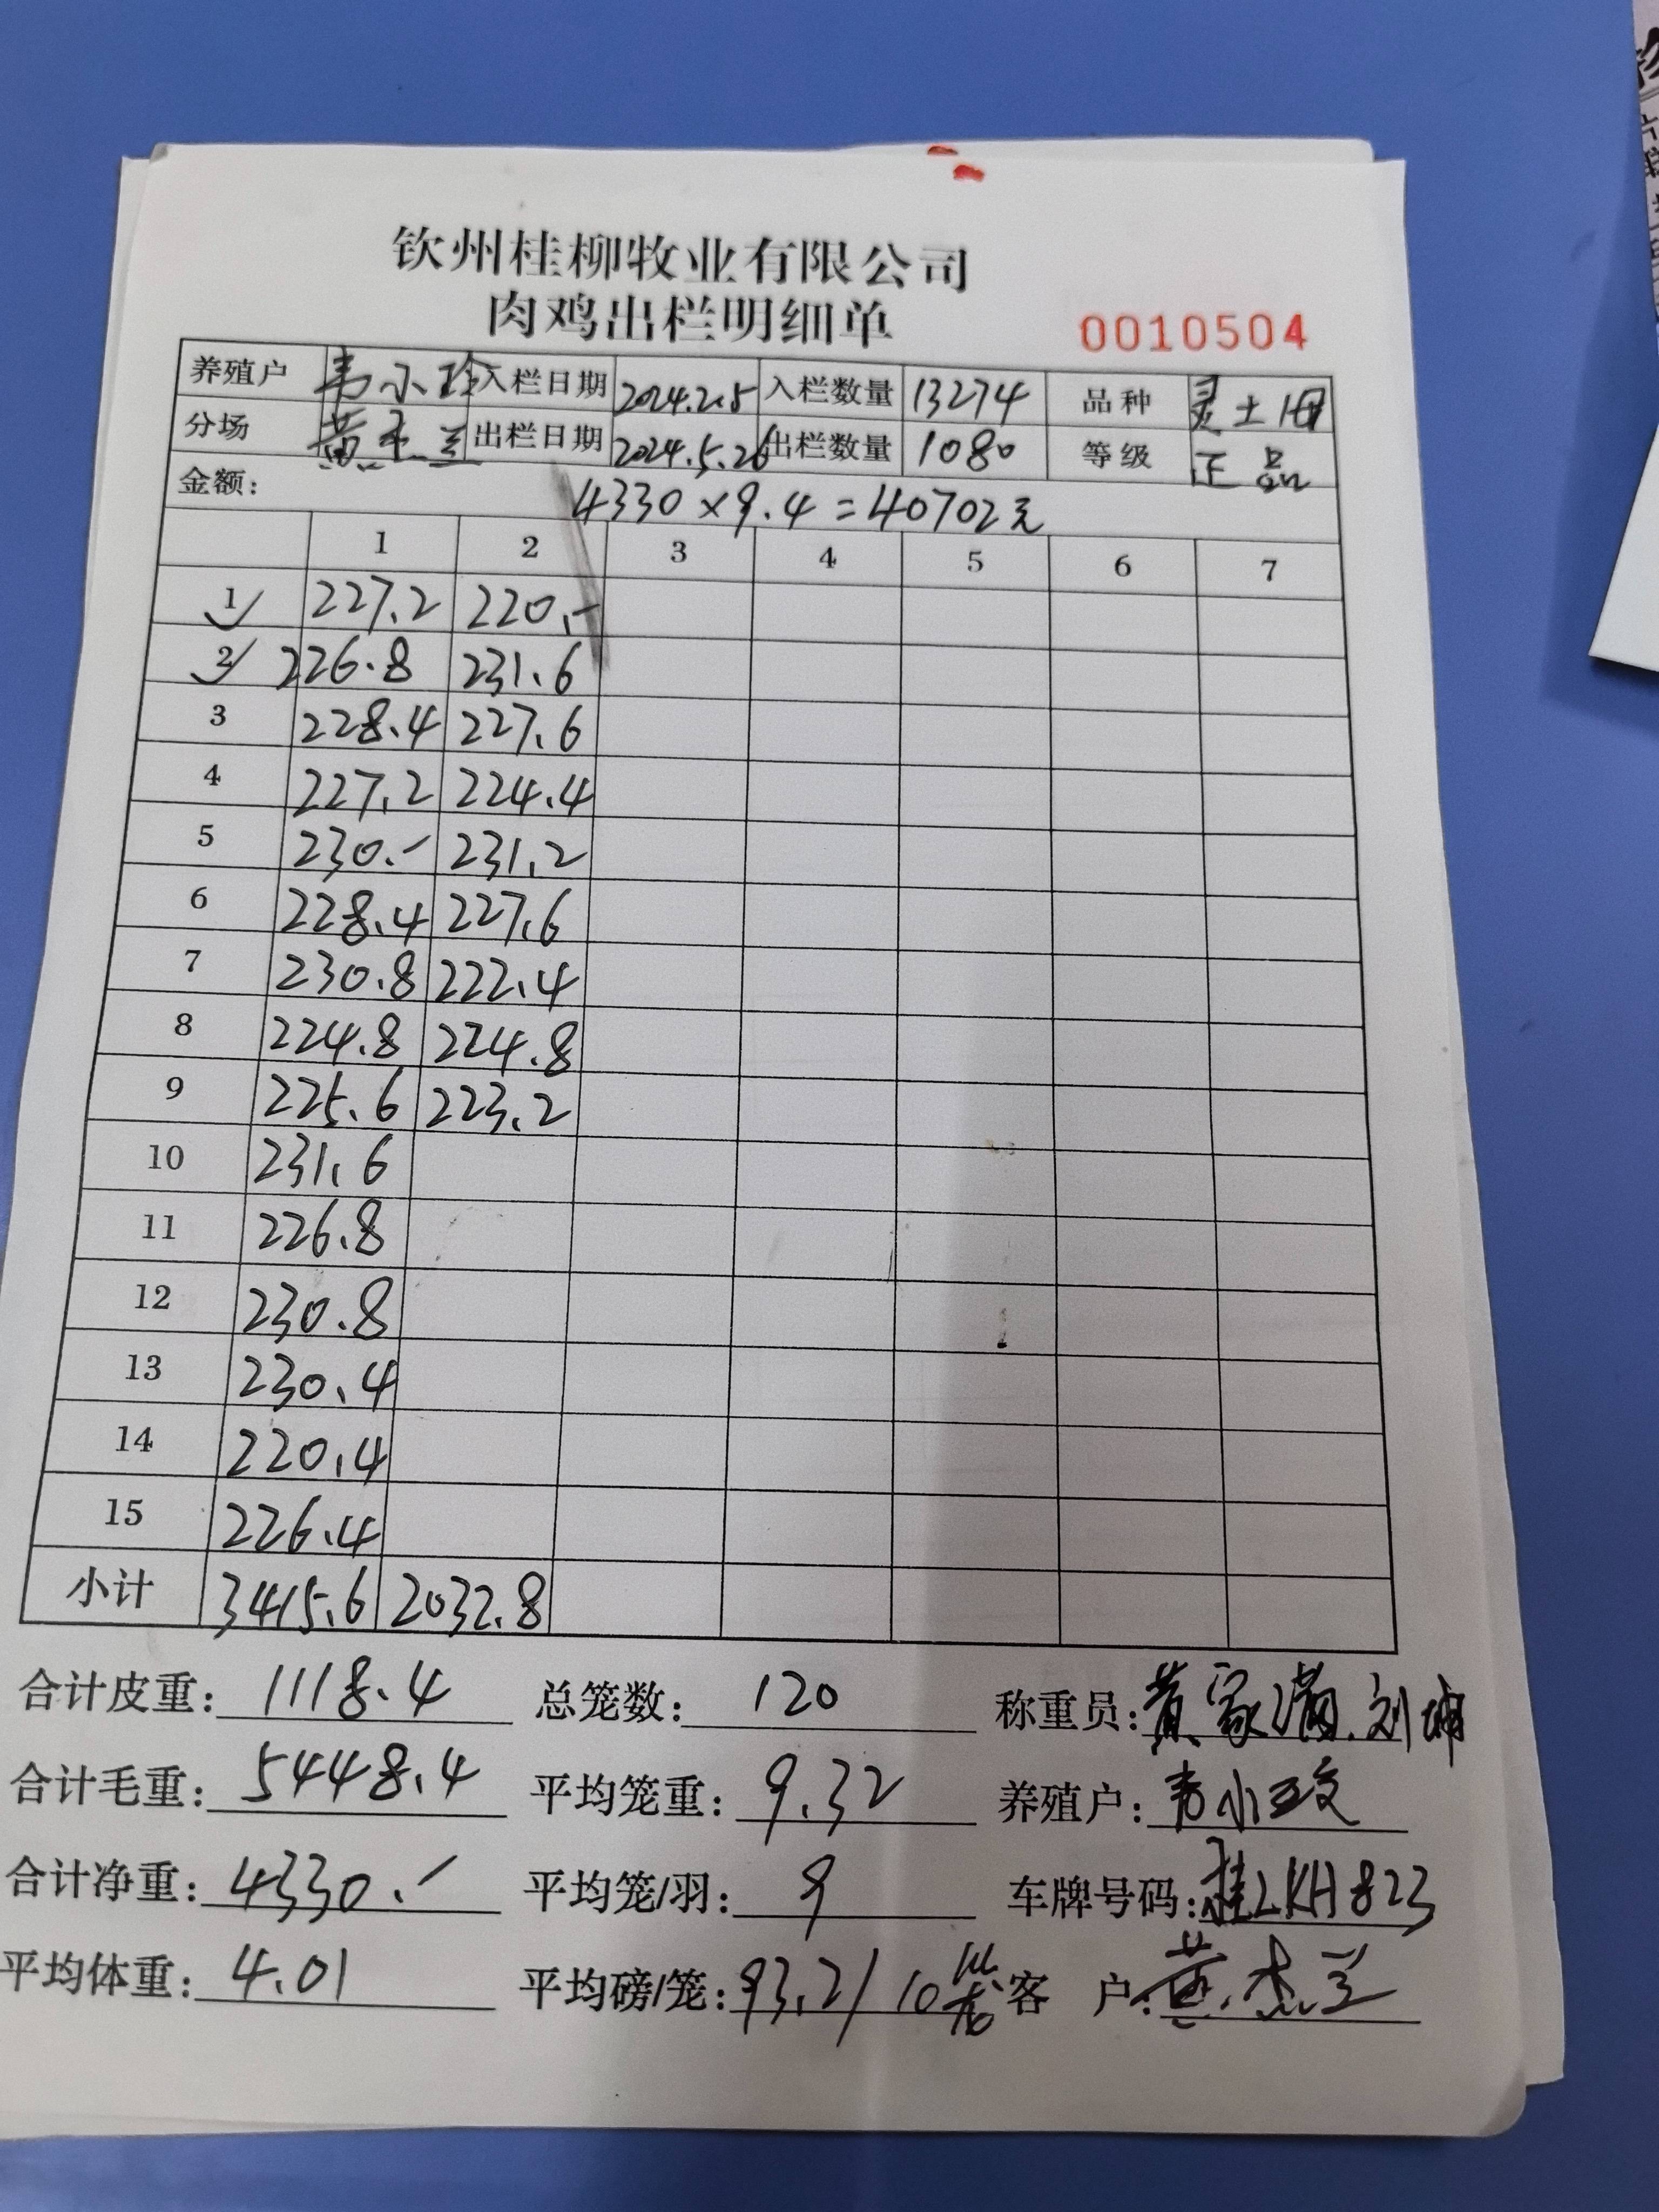 钦州桂柳牧业有限公司
肉鸡出栏明细单
0010504
养殖户 韦小玲 入栏日期 2024.2.5 入栏数量 13274 品种 灵土
分场 黄 兰 出栏日期 2024.5.26 出栏数量 1080 等级 正品
金额: 4330×9.4=40702元
1 2 3 4 5 6 7
1 227.2 220.-
2 226.8 231.6
3 228.4 227.6
4 227.2 224.4
5 230.- 231.2
6 228.4 227.6
7 230.8 222.4
8 224.8 224.8
9 225.6 223.2
10 231.6
11 226.8
12 230.8
13 230.4
14 220.4
15 226.4
小计 3415.6 2032.8
合计皮重: 1118.4 总笼数: 120 称重员: 黄家满.刘坤
合计毛重: 5448.4 平均笼重: 9.32 养殖户: 韦小
合计净重: 4330.- 平均笼/羽: 9 车牌号码: 桂LKH823
平均体重: 4.01 平均磅/笼: 93.2/10 客 户: 黄 兰